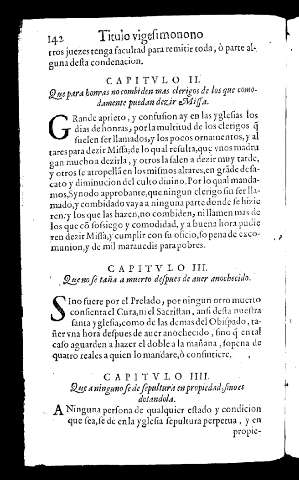 142 Titulo vigesimonono
tros juezes tenga facultad para remitir toda, ò parte al-
guna desta condenacion.
CAPITVLO II.
Que para honras no combiden mas clerigos de los que como-
damente puedan dezir Missa.
GRande aprieto, y confusion ay en las yglesias los
dias de honras, por la multitud de los clerigos q̃
suelen ser llamados, y los pocos ornamentos, y al
tares para dezir Missa, de lo qual resulta, que vnos madru
gan mucho a dezirla, y otros salen a dezir muy tarde,
y otros se atropellã en los mismos altares, en grãde desa-
cato y diminucion del culto diuino. Por lo qual manda-
mos, Synodo approbante, que ningun clerigo sin ser lla-
mado, y combidado vaya a ninguna parte donde se hizie
ren: y los que las hazen, no combiden, ni llamen mas de
los que cõ sosiego y comodidad, y a buena hora pudie
ren dezir Missa, y cumplir con su oficio, so pena de exco-
munion, y de mil marauedis para pobres.
CAPITVLO III.
Que no se taña a muerto despues de auer anochecido.
SIno fuere por el Prelado, por ningun otro muerto
consienta el Cura, ni el Sacristan, ansi desta nuestra
santa yglesia, como de las demas del Obispado, ta-
ñer vna hora despues de auer anochecido, sino q̃ en tal
caso aguarden a hazer el doble a la mañana, sopena de
quatro reales a quien lo mandare, ò consintiere.
CAPITVLO IIII.
Que a ninguno se de sepultura en propiedad, sino es
dotandola.
A Ninguna persona de qualquier estado y condicion
que sea, se de en la yglesia sepultura perpetua, y en
propie-